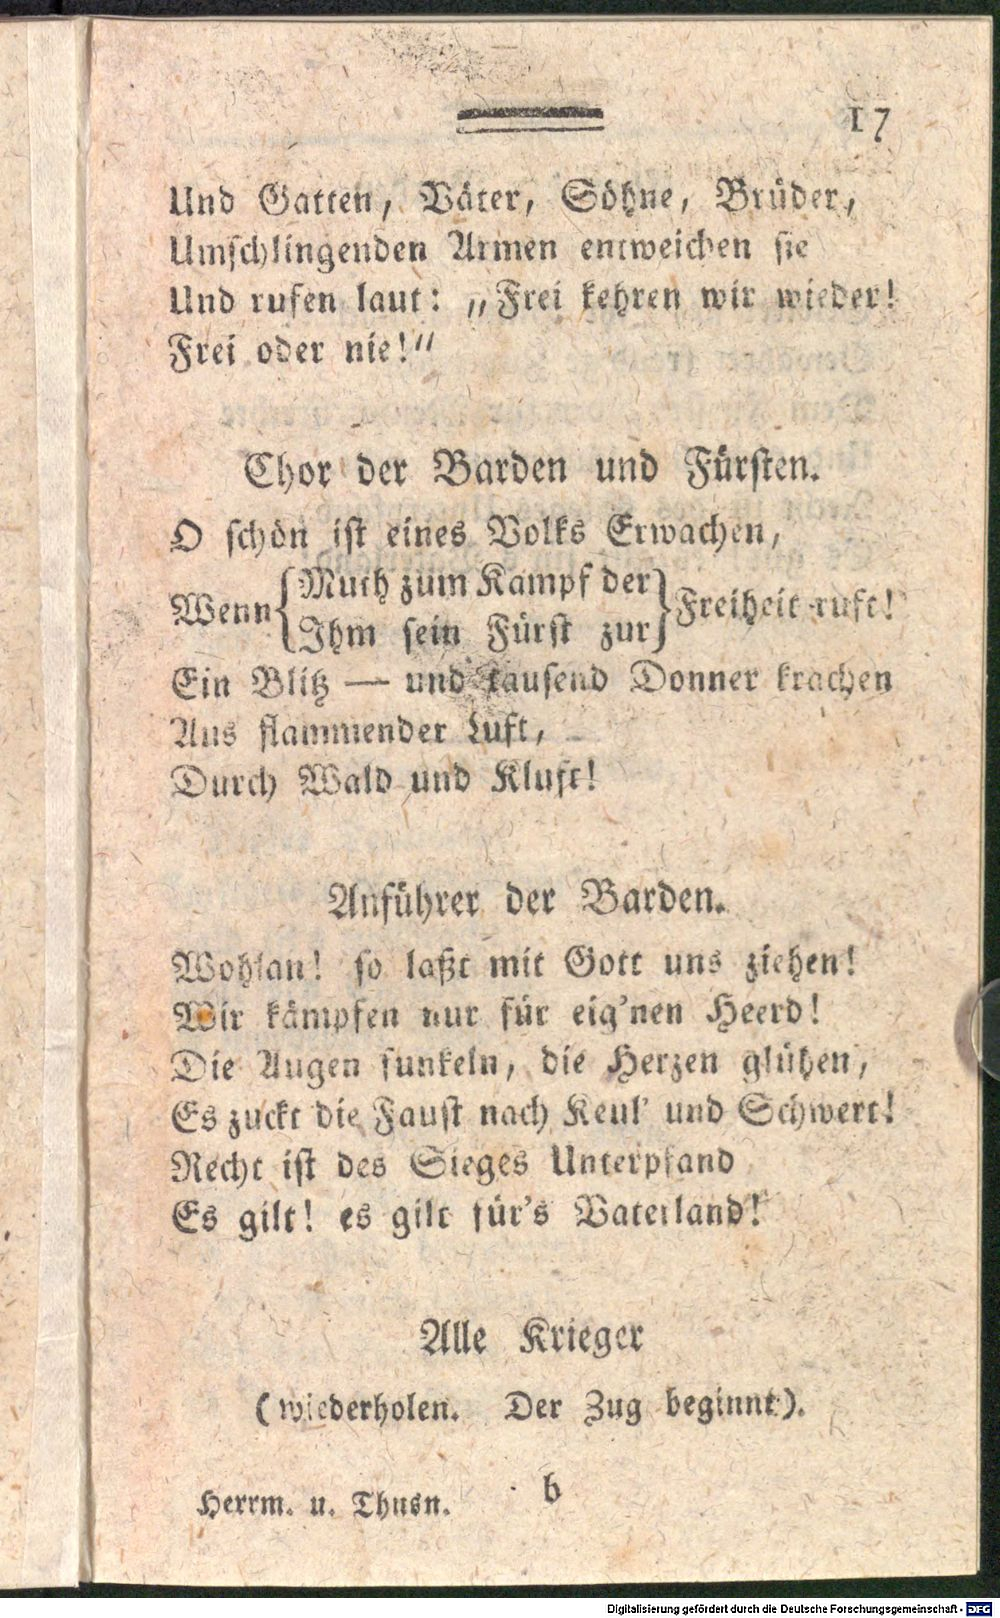 17
Und Gatten, Väter, Söhne, Brüder,
Umschlingenden Armen entweichen sie
Und rufen laut: „Frei kehren wir wieder!
Frei oder nie!“
Chor der Barden und Fürsten.
O schön ist eines Volks Erwachen,
Wenn {Muth zum Kampf der} Freiheit ruft!
{Ihm sein Fürst zur}
Ein Blitz — und tausend Donner krachen
Aus flammender Luft,
Durch Wald und Kluft!
Anführer der Barden.
Wohlan! so laßt mit Gott uns ziehen!
Wir kämpfen nur für eig'nen Heerd!
Die Augen funkeln, die Herzen glühen,
Es zuckt die Faust nach Keul' und Schwert!
Recht ist des Sieges Unterpfand
Es gilt! es gilt für's Vaterland!
Alle Krieger
(wiederholen. Der Zug beginnt).
Herrm. u. Thusn. b
Digitalisierung gefördert durch die Deutsche Forschungsgemeinschaft - DFG